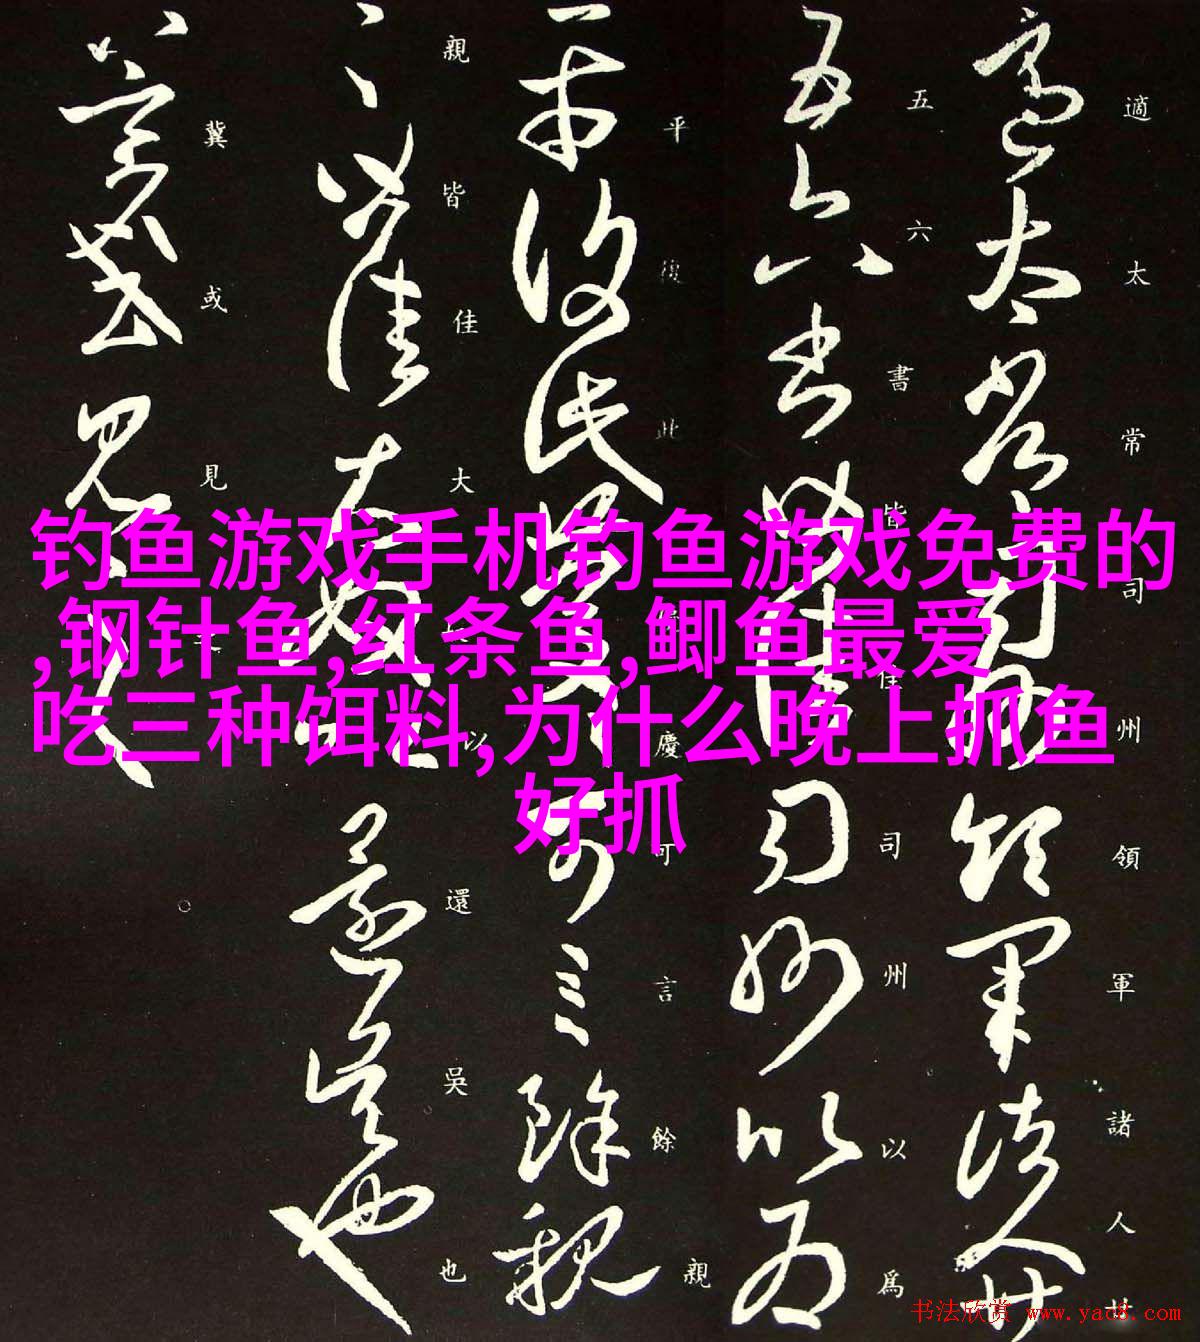 钓鱼游戏手机钓鱼游戏免费的
,钢针鱼,红条鱼,鲫鱼最爱
吃三种饵料,为什么晚上抓鱼
好抓
適太常司州領軍諸人廿
五六書皆佳司州以爲
平復此慶慶可言餘親
親皆佳大以還吳也
冀或見
书法欣赏 www.yac8.com